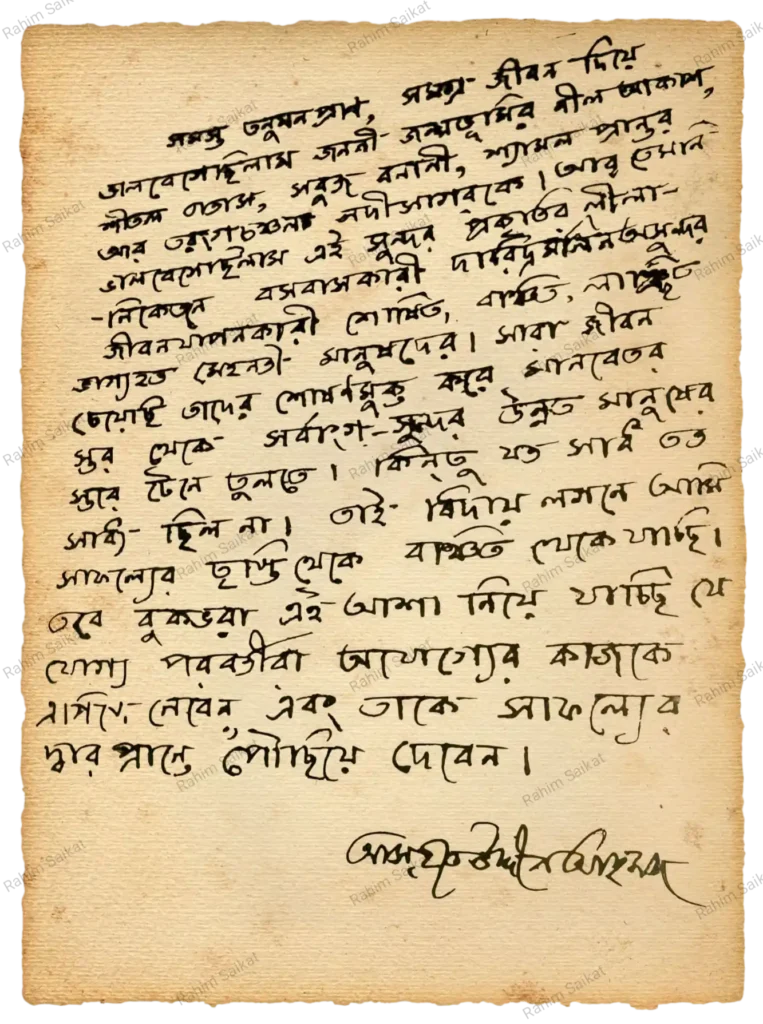 সমস্ত তনুমনপ্রাণ, সমগ্র জীবন দিয়ে
ভালবেসেছিলাম জননী-জন্মভূমির নীল আকাশ,
শীতল বাতাস, সবুজ বনানী, শ্যামল প্রান্তর
আর তরংগচঞ্চল নদীসাগরকে। আর তেমনি
ভালবেসেছিলাম এই সুন্দর প্রকৃতির লীলা-
-নিকেতনে বসবাসকারী দারিদ্রমলিন অসুন্দর
জীবনযাপনকারী শোষিত, বাঞ্চিত, লাঞ্ছিত
ভাগ্যহত মেহনতী মানুষদের। সারা জীবন
চেয়েছি তাদের শোষণমুক্ত করে মানবেতর
স্তর থেকে সর্বাংগ-সুন্দর উন্নত মানুষের
স্তরে টেনে তুলতে। কিন্তু যত সাধ তত
সাধ্য ছিল না। তাই বিদায় লগনে আমি
সাফল্যের তৃপ্তি থেকে বাঞ্চিত থেকে যাচ্ছি।
তবে বুকভরা এই আশা নিয়ে যাচ্ছি যে
যোগ্য পরবর্তীরা অযোগ্যের কাজকে
এগিয়ে নেবেন, এবং তাকে সাফল্যের
দ্বার প্রান্তে পৌছিয়ে দেবেন।
আসহাবউদ্দীন আহমদ
Rahim Saikat